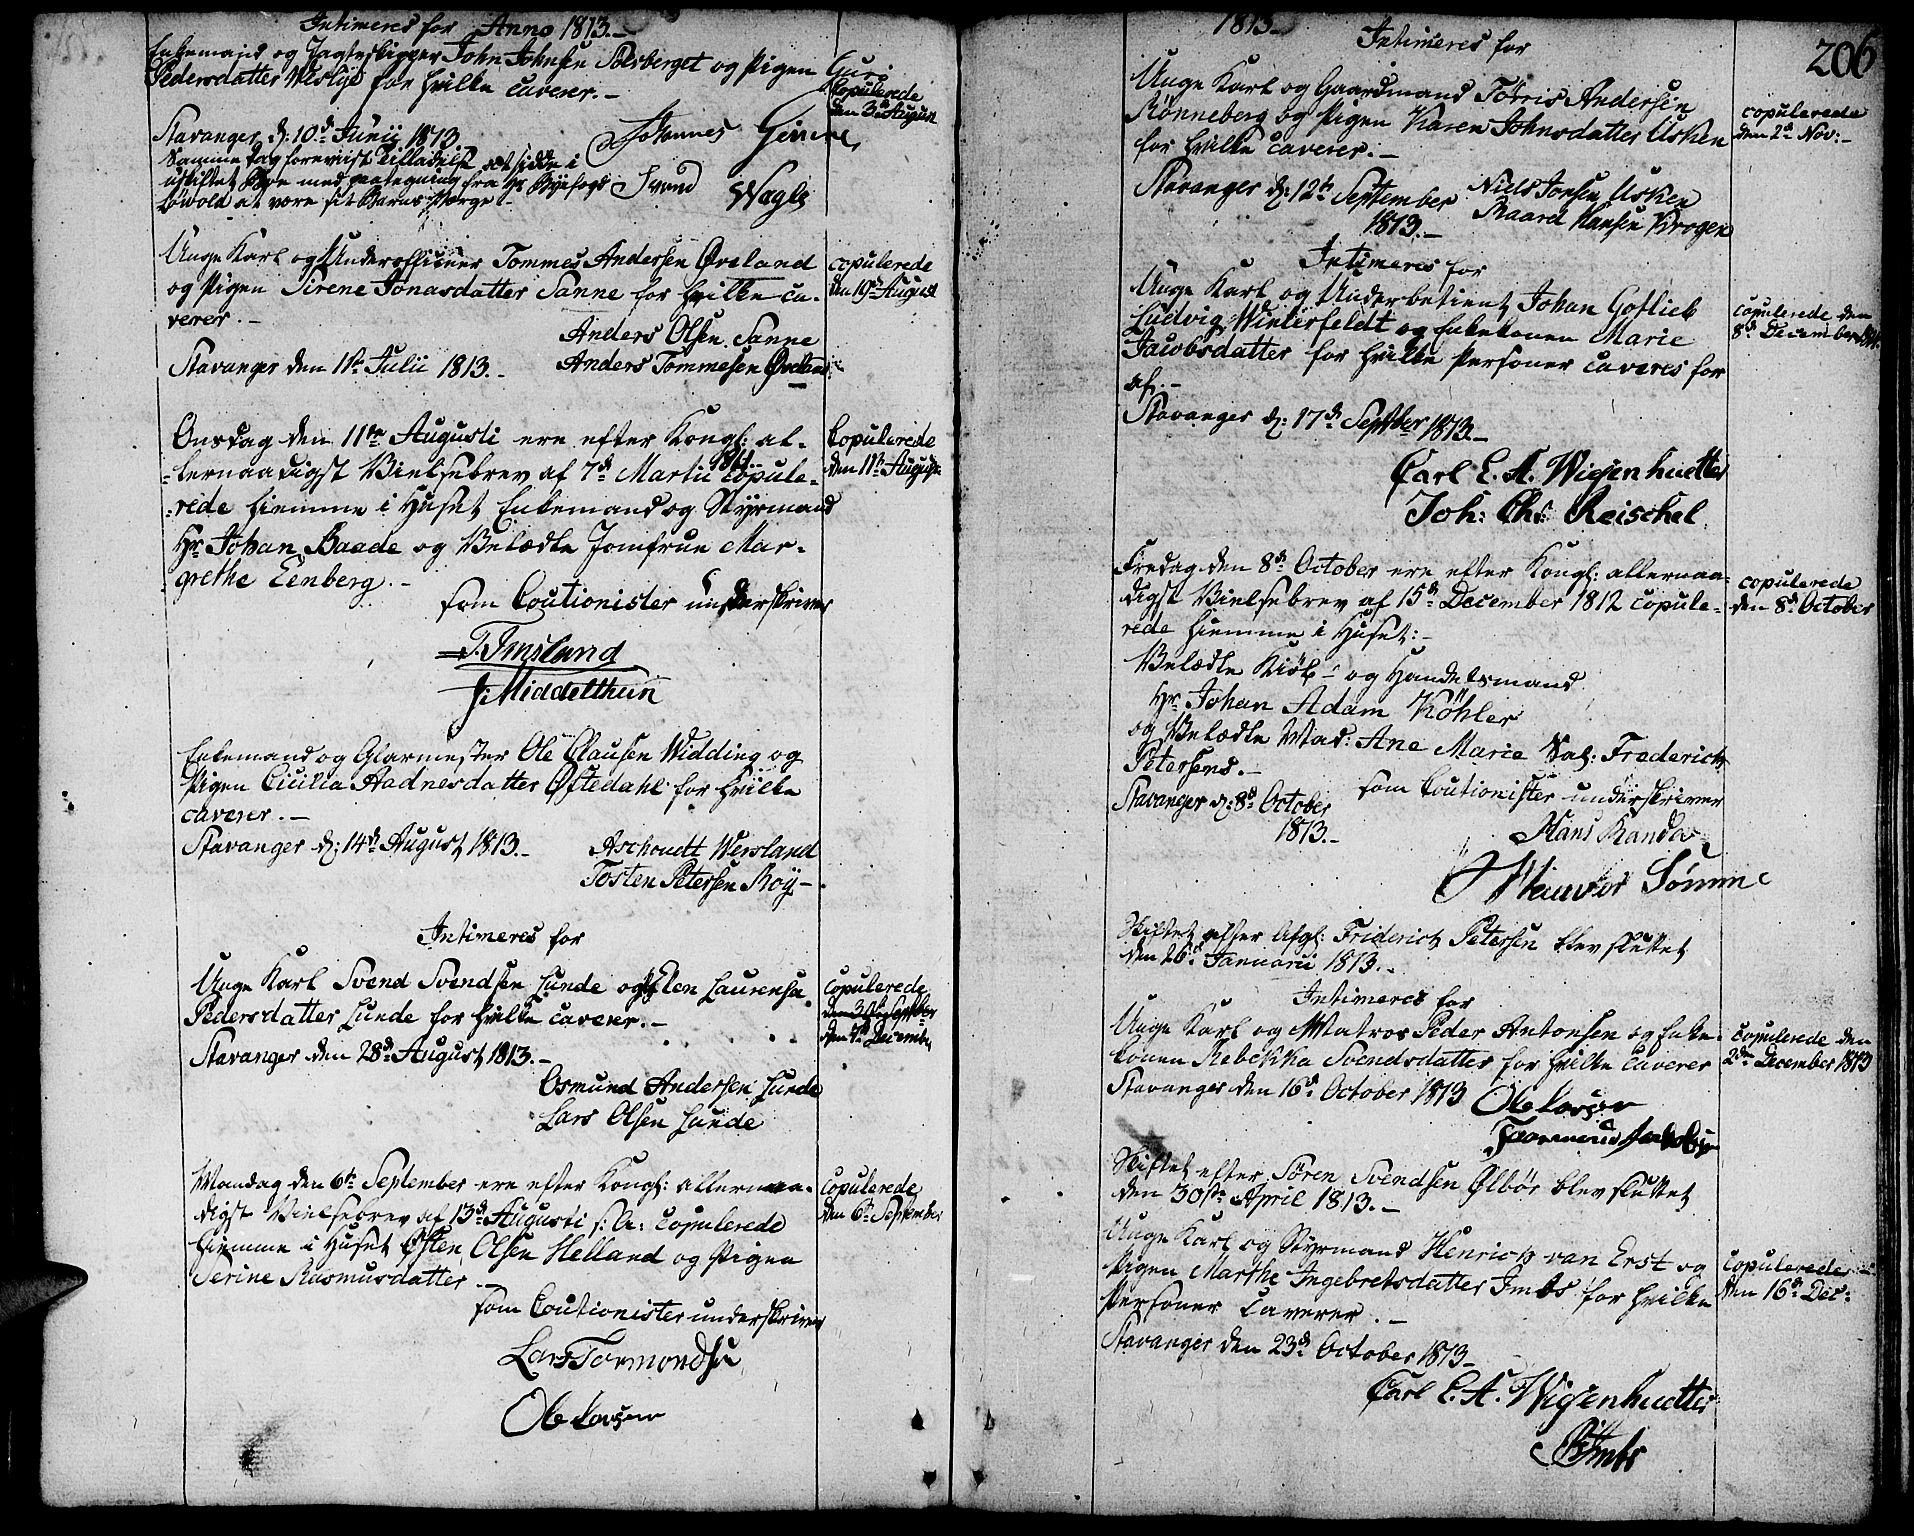 Intimeres for Anno 1813.-
Enkemand og Jagtskipper John Johnsen Solsberget og Pigen Guri
Pedersdatter for hvilke caverer.-
Copulerede
den 3die August
Stavanger d: 10d Junij 1813.
Johannes
Samme Dag foreviist Tilladelse at sidde i
uskiftet Boe med paategning fra Hr Byefoged
Løwold at være sit Barns Værge.-
Svend Wagle
Unge Karl og Underofficeer Tommes Andersen Øveland
og Pigen Sirene Jonasdatter Sanne for hvilke ca-
verer.-
copulerede
den 19d August
Anders Olsen Sanne
Stavanger den 11te Julii 1813.-
Anders Tommesen Øveland
Onsdag den 11te Augusti ere efter Kongl: al-
lernaadigst Vielsebrev af 7d Martii 1811 copule-
rede hiemme i Huset Enkemand og Styrmand
Hr Johan Baade og Velædle Jomfrue Mar-
grethe Eenberg.-
Copulerede
den 11te August
som Coutionister underskriver
T. Imsland
J: Middelthun
Enkemand og Glarmester Ole Clausen Widding og
Pigen Cicilia Aadnesdatter Oftedahl for hvilke
caverer.-
Stavanger d: 14d August 1813.-
Aschoudt Wersland
Tosten Petersen Roÿ-
Intimeres for
Unge Karl Svend Svendsen Lunde og Elen Laurensa
Pedersdatter Lunde for hvilke caverer.-
Copulerede
den 30te September
den 4de December
Stavanger den 28d August 1813.-
Osmund Andersen Lunde
Lars Olsen Lunde
Mandag den 6te September ere efter Kongl: allernaa-
digst Vielsebrev af 13d Augusti s: A: copulerede
hiemme i Huset Østen Olsen Helland og Pigen
Serine Rasmusdatter.-
Copulerede
den 6te September
som Coutionister underskriver
Lars Tormondsen
Ole Larsen
1813-
206
Intimeres for
Unge Karl og Gaardmand Tørris Andersen
Rønneberg og Pigen Karen Johnsdatter Usken
for hvilke caverer.-
copulerede
den 2d Nov:-
Stavanger d: 12te September
1813.-
Niels Jonsen Usken
Baard Hansen Krogen
Intimeres for
Unge Karl og Underbetient Johan Gotlieb
Ludvig Winterfeldt og Enkekonen Marie
Jacobsdatter for hvilke Personer caveres for
af.-
copulerede den
8d December
Stavanger d: 17d Septbr 1813.-
Carl E. A. Wigenhuetter
Joh: Chr: Reischel
Fredag den 8d October ere efter Kongl: allernaa-
digst Vielsebrev af 15d December 1812 copule-
rede hiemme i Huset:-
Velædle Kiøb- og Handelsmand
Hr. Johan Adam Köhler
og Velædle Mad: Ane Marie Sal: Frederich
Petersens.-
copulerede
den 8d October
Stavanger d: 8d October
1813.-
som Coutionister underskriver
Hans Kanda
Sømme
Skiftet efter Afgl: Friderich Petersen blev sluttet
den 26d Januarii 1813.-
Intimeres for
Unge Karl og Matros Peder Antonsen og Enke-
konen Rebekka Svendsdatter for hvilke caverer
Stavanger den 16d October 1813
copulerede den
2den December 1813
Ole Larsen
Skiftet efter Søren Svendsen Ølbør blev sluttet
den 30te April 1813.-
Unge Karl og Styrmand Henrich van Erst og
Pigen Marthe Ingebretsdatter Imbs for hvilke
Personer caverer.-
copulerede
den 16d Dec:
Stavanger den 23d October 1813-
Carl E. A. Wigenhuetter
Imbs